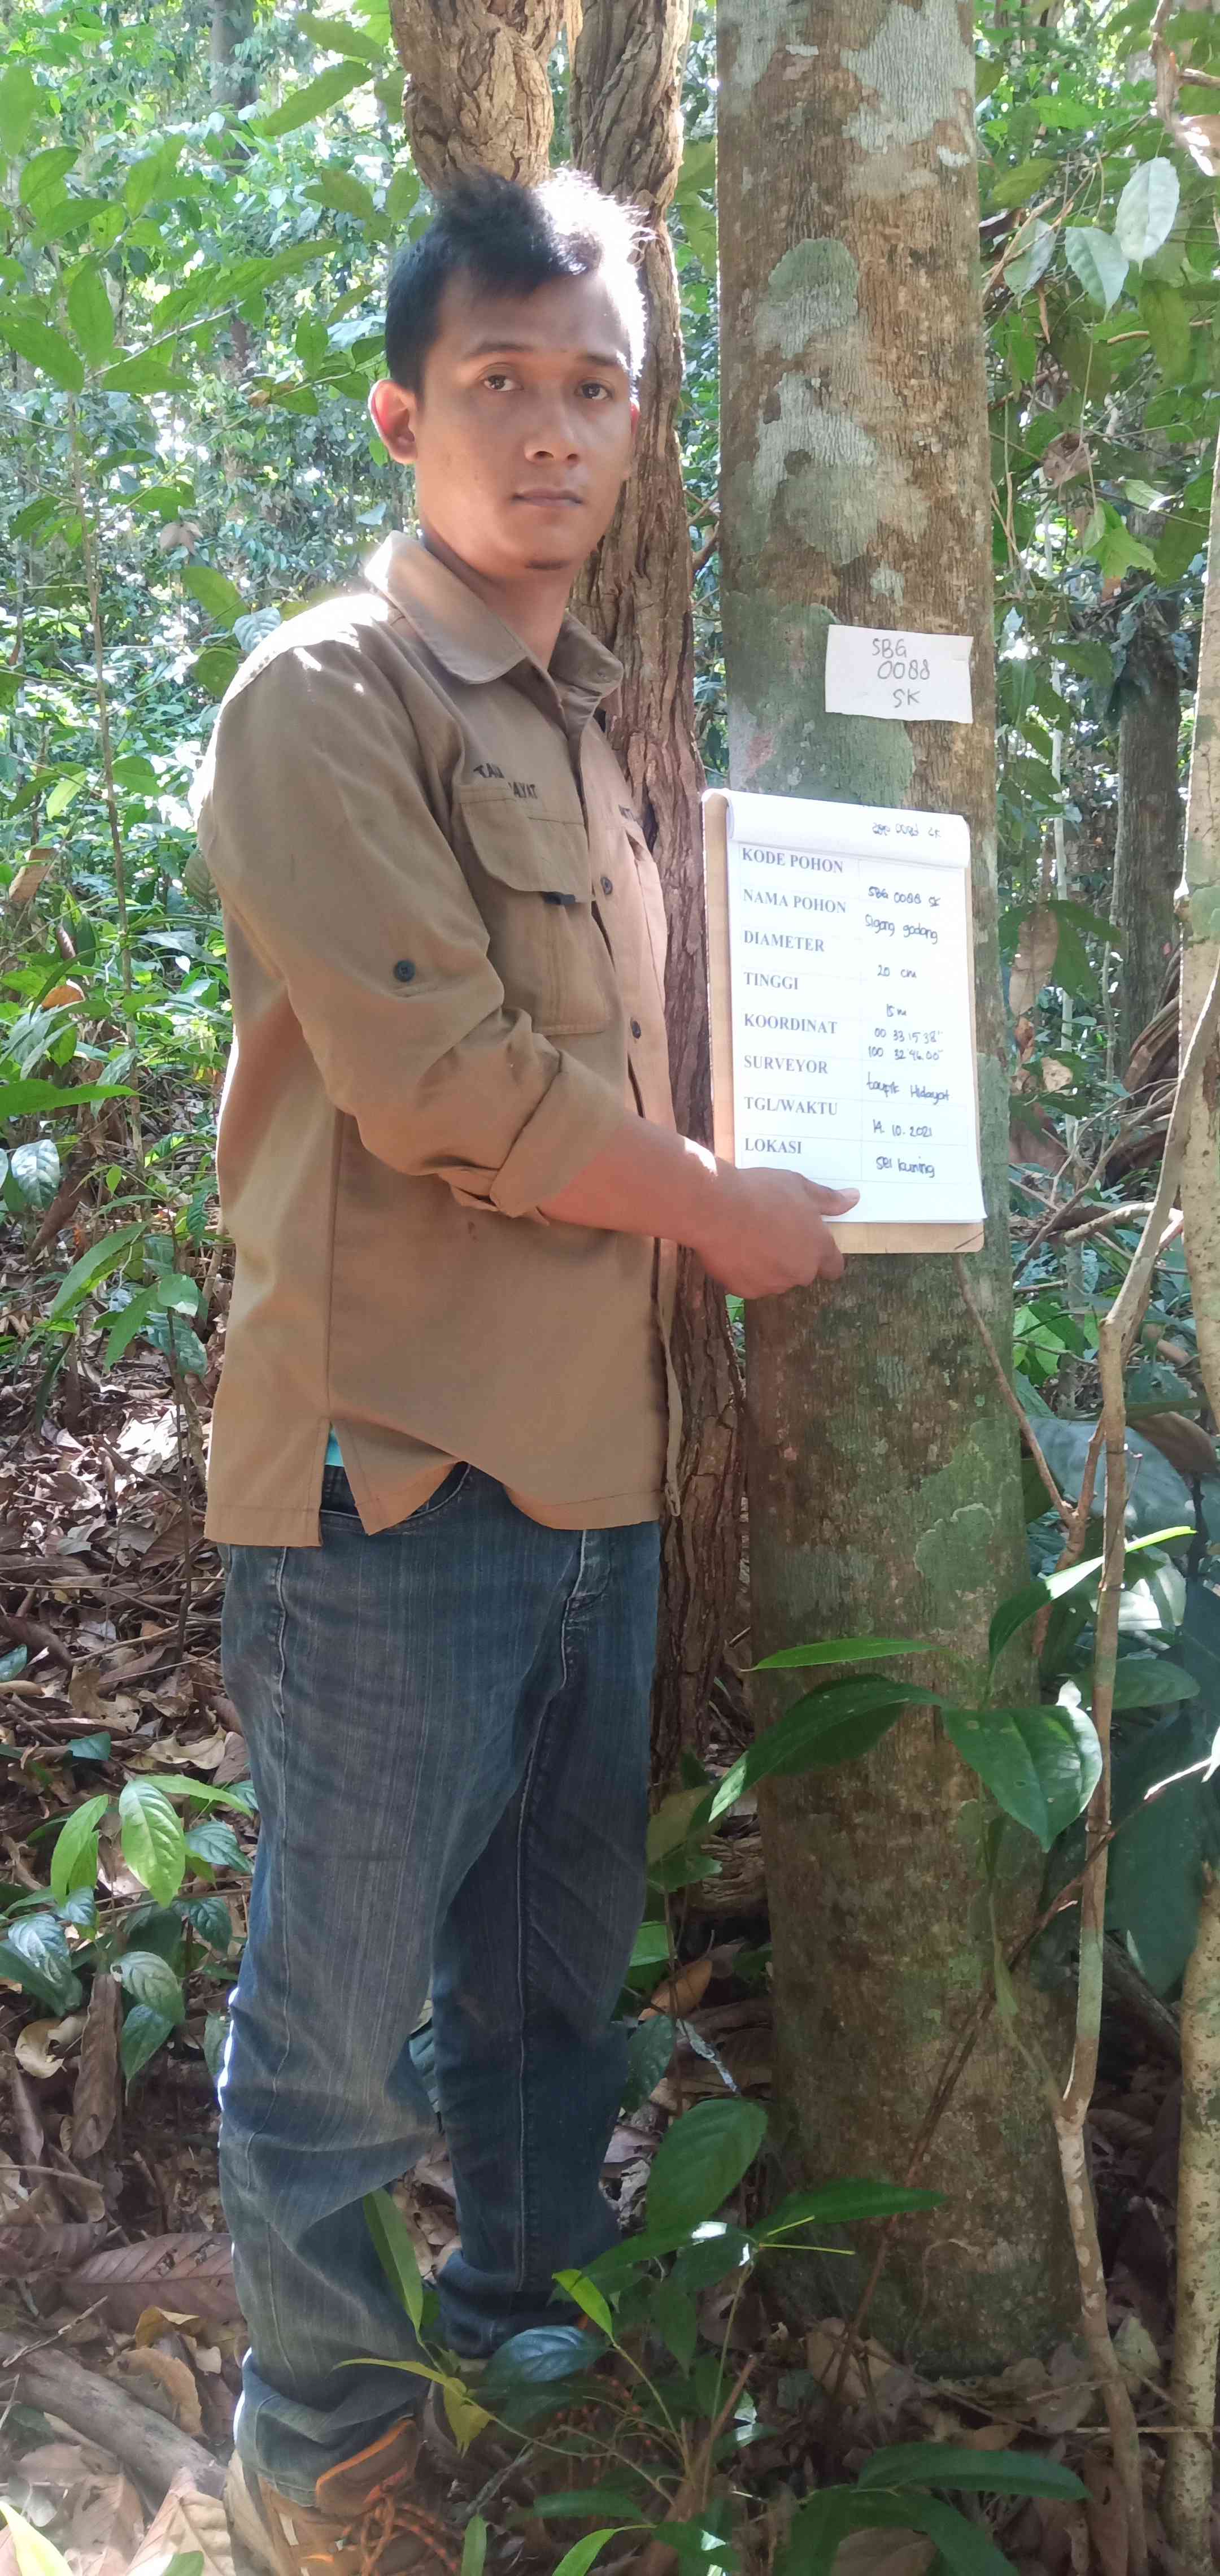 SBG
0088
SK
KODE POHON SBG 0088 SK
NAMA POHON Sigang gadang
DIAMETER 20 cm
TINGGI 15 m
KOORDINAT 00 33 15 38"
100 32'46.00"
SURVEYOR taupik Hidayat
TGL/WAKTU 14. 10. 2021
LOKASI sei kuning